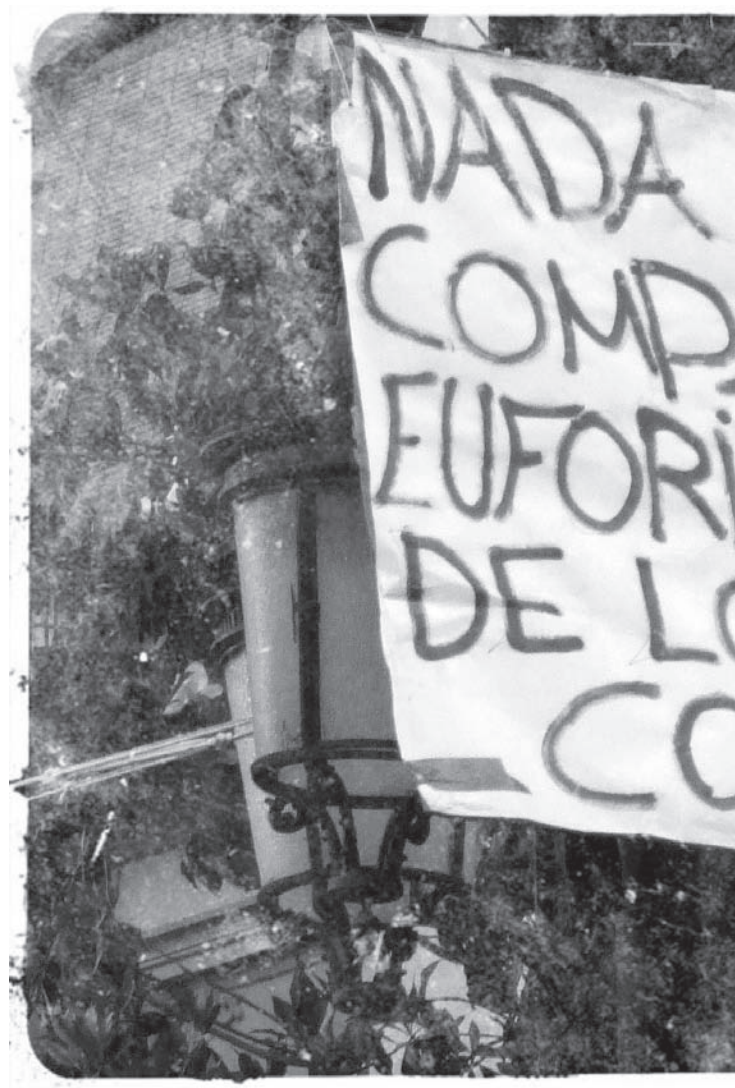 NADA
COMP
EUFORI
DE LO
CO